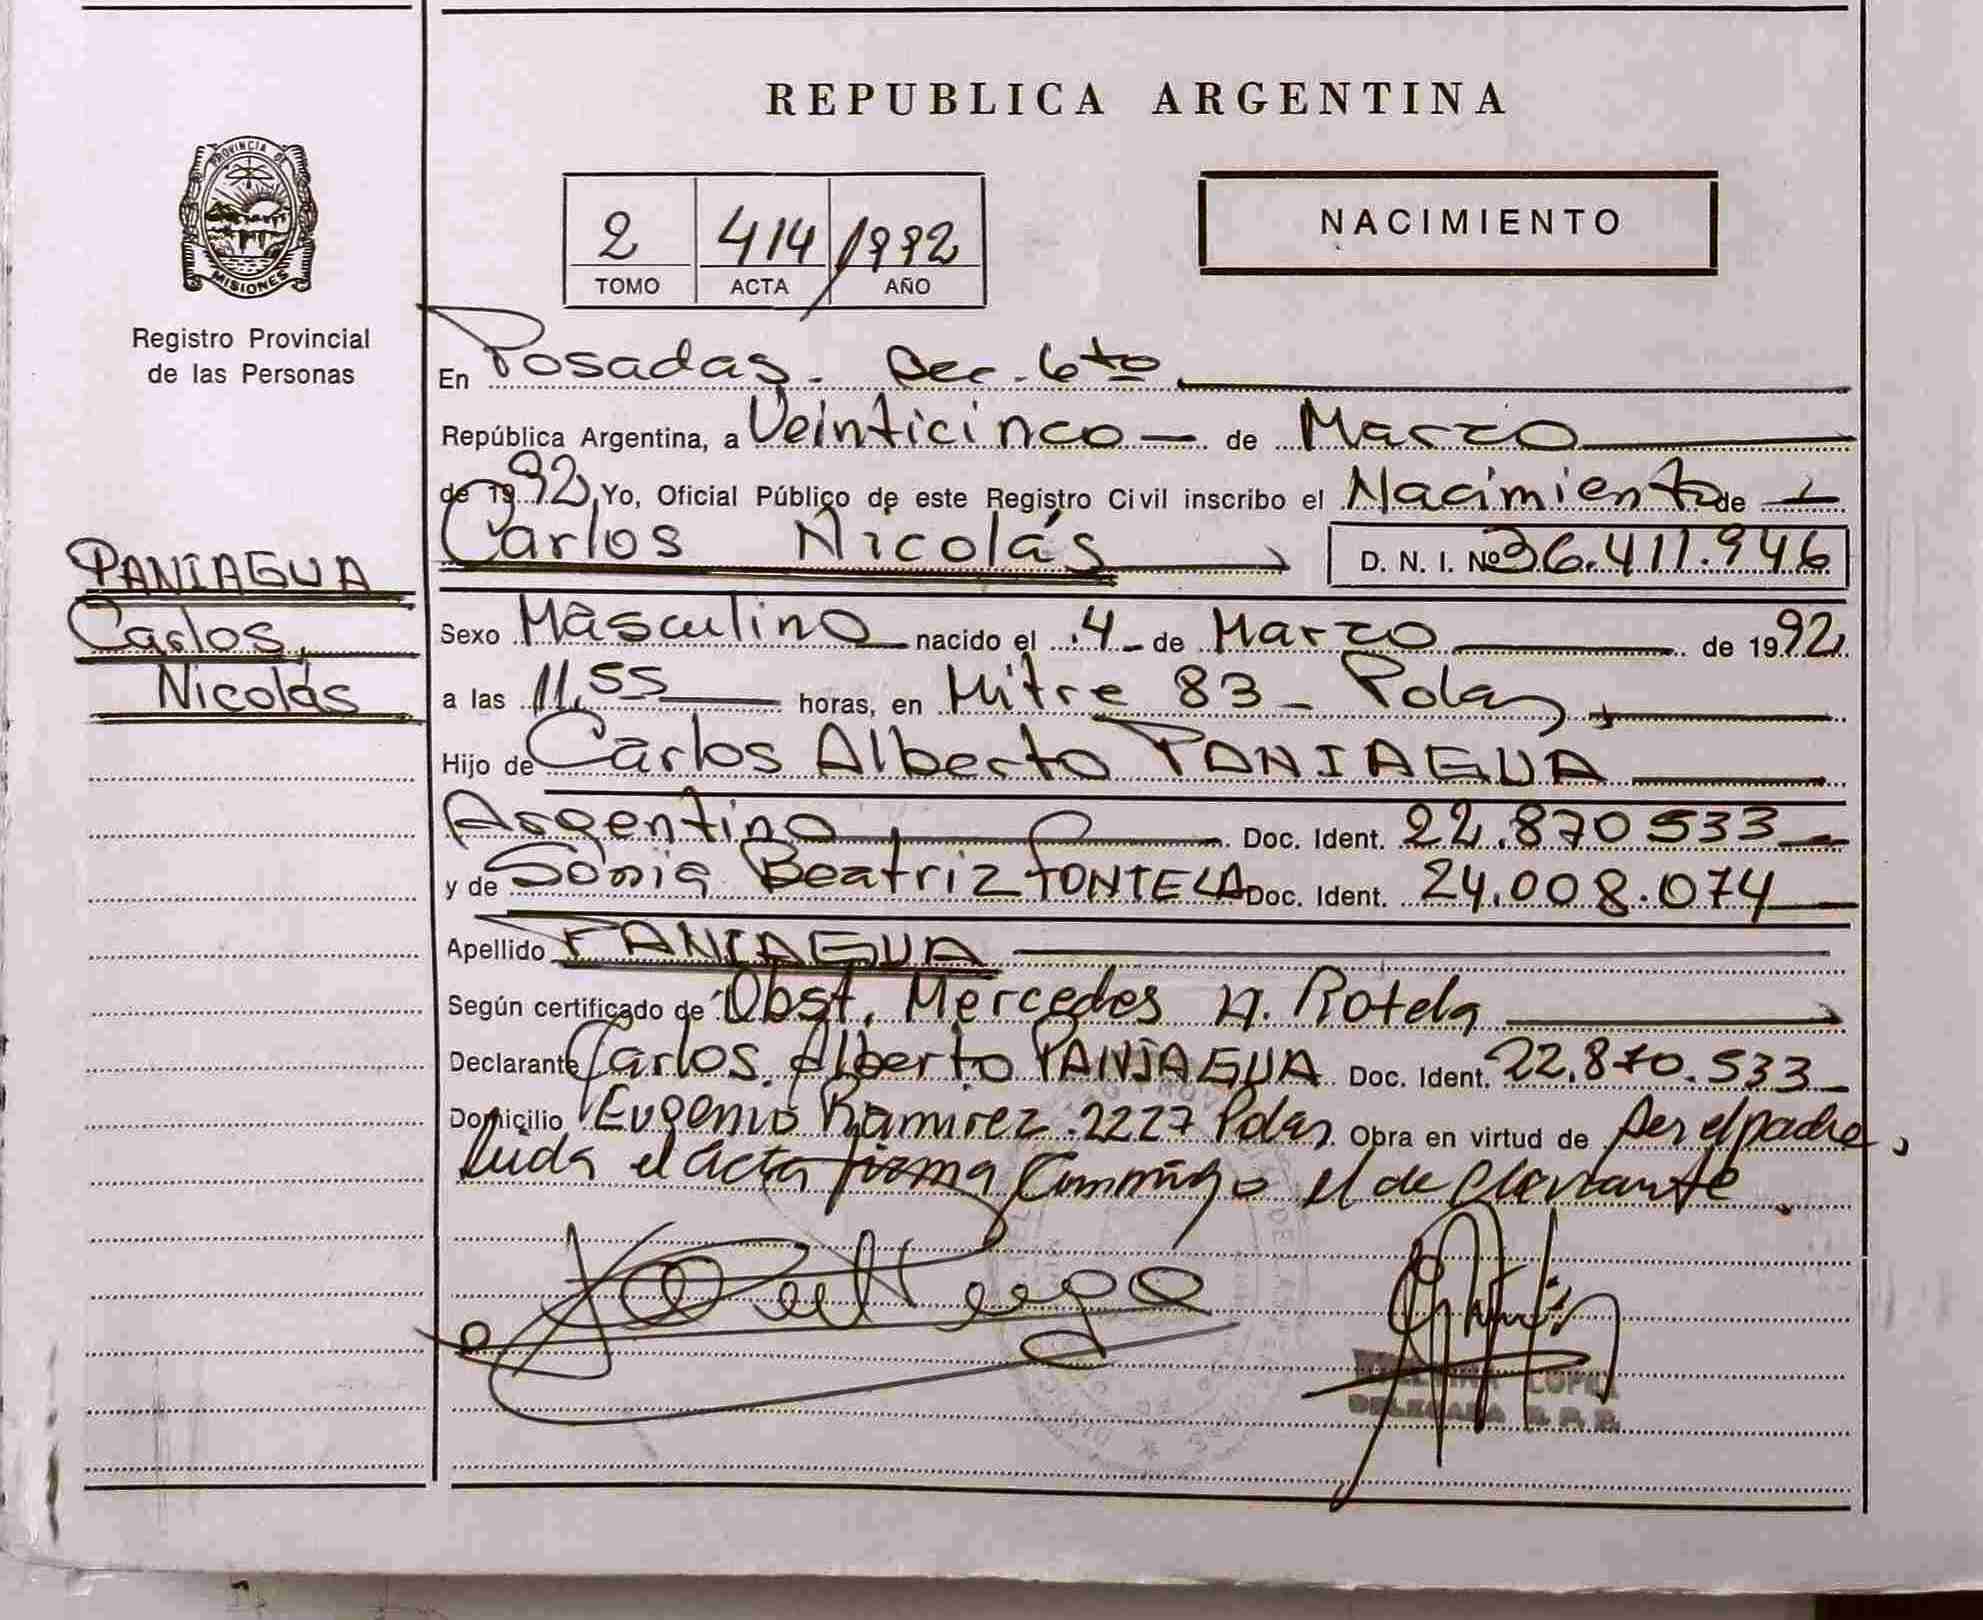 REPUBLICA ARGENTINA
PROVINCIA DE
MISIONES
Registro Provincial
de las Personas
2 414 1992
TOMO ACTA AÑO
NACIMIENTO
En Posadas. Sec. 6to
República Argentina, a Veinticinco — de Marzo
de 1992, Yo, Oficial Público de este Registro Civil inscribo el Nacimiento de
Carlos Nicolás D. N. I. Nº 36.411.946
PANIAGUA
Carlos,
Nicolás
Sexo Masculino nacido el 4 de Marzo de 1992
a las 11,55 horas, en Mitre 83 - Pdas,
Hijo de Carlos Alberto PANIAGUA
Argentino Doc. Ident. 22.870533
y de Sonia Beatriz FONTELA Doc. Ident. 24.008.074
Apellido PANIAGUA
Según certificado de Obst. Mercedes A. Rotela
Declarante Carlos Alberto PANIAGUA Doc. Ident. 22.870.533
Domicilio Eugenio Ramirez 2227 Pdas. Obra en virtud de ser el padre,
Leida el acta firma conmigo el declarante
DELEGADA R. P. P.